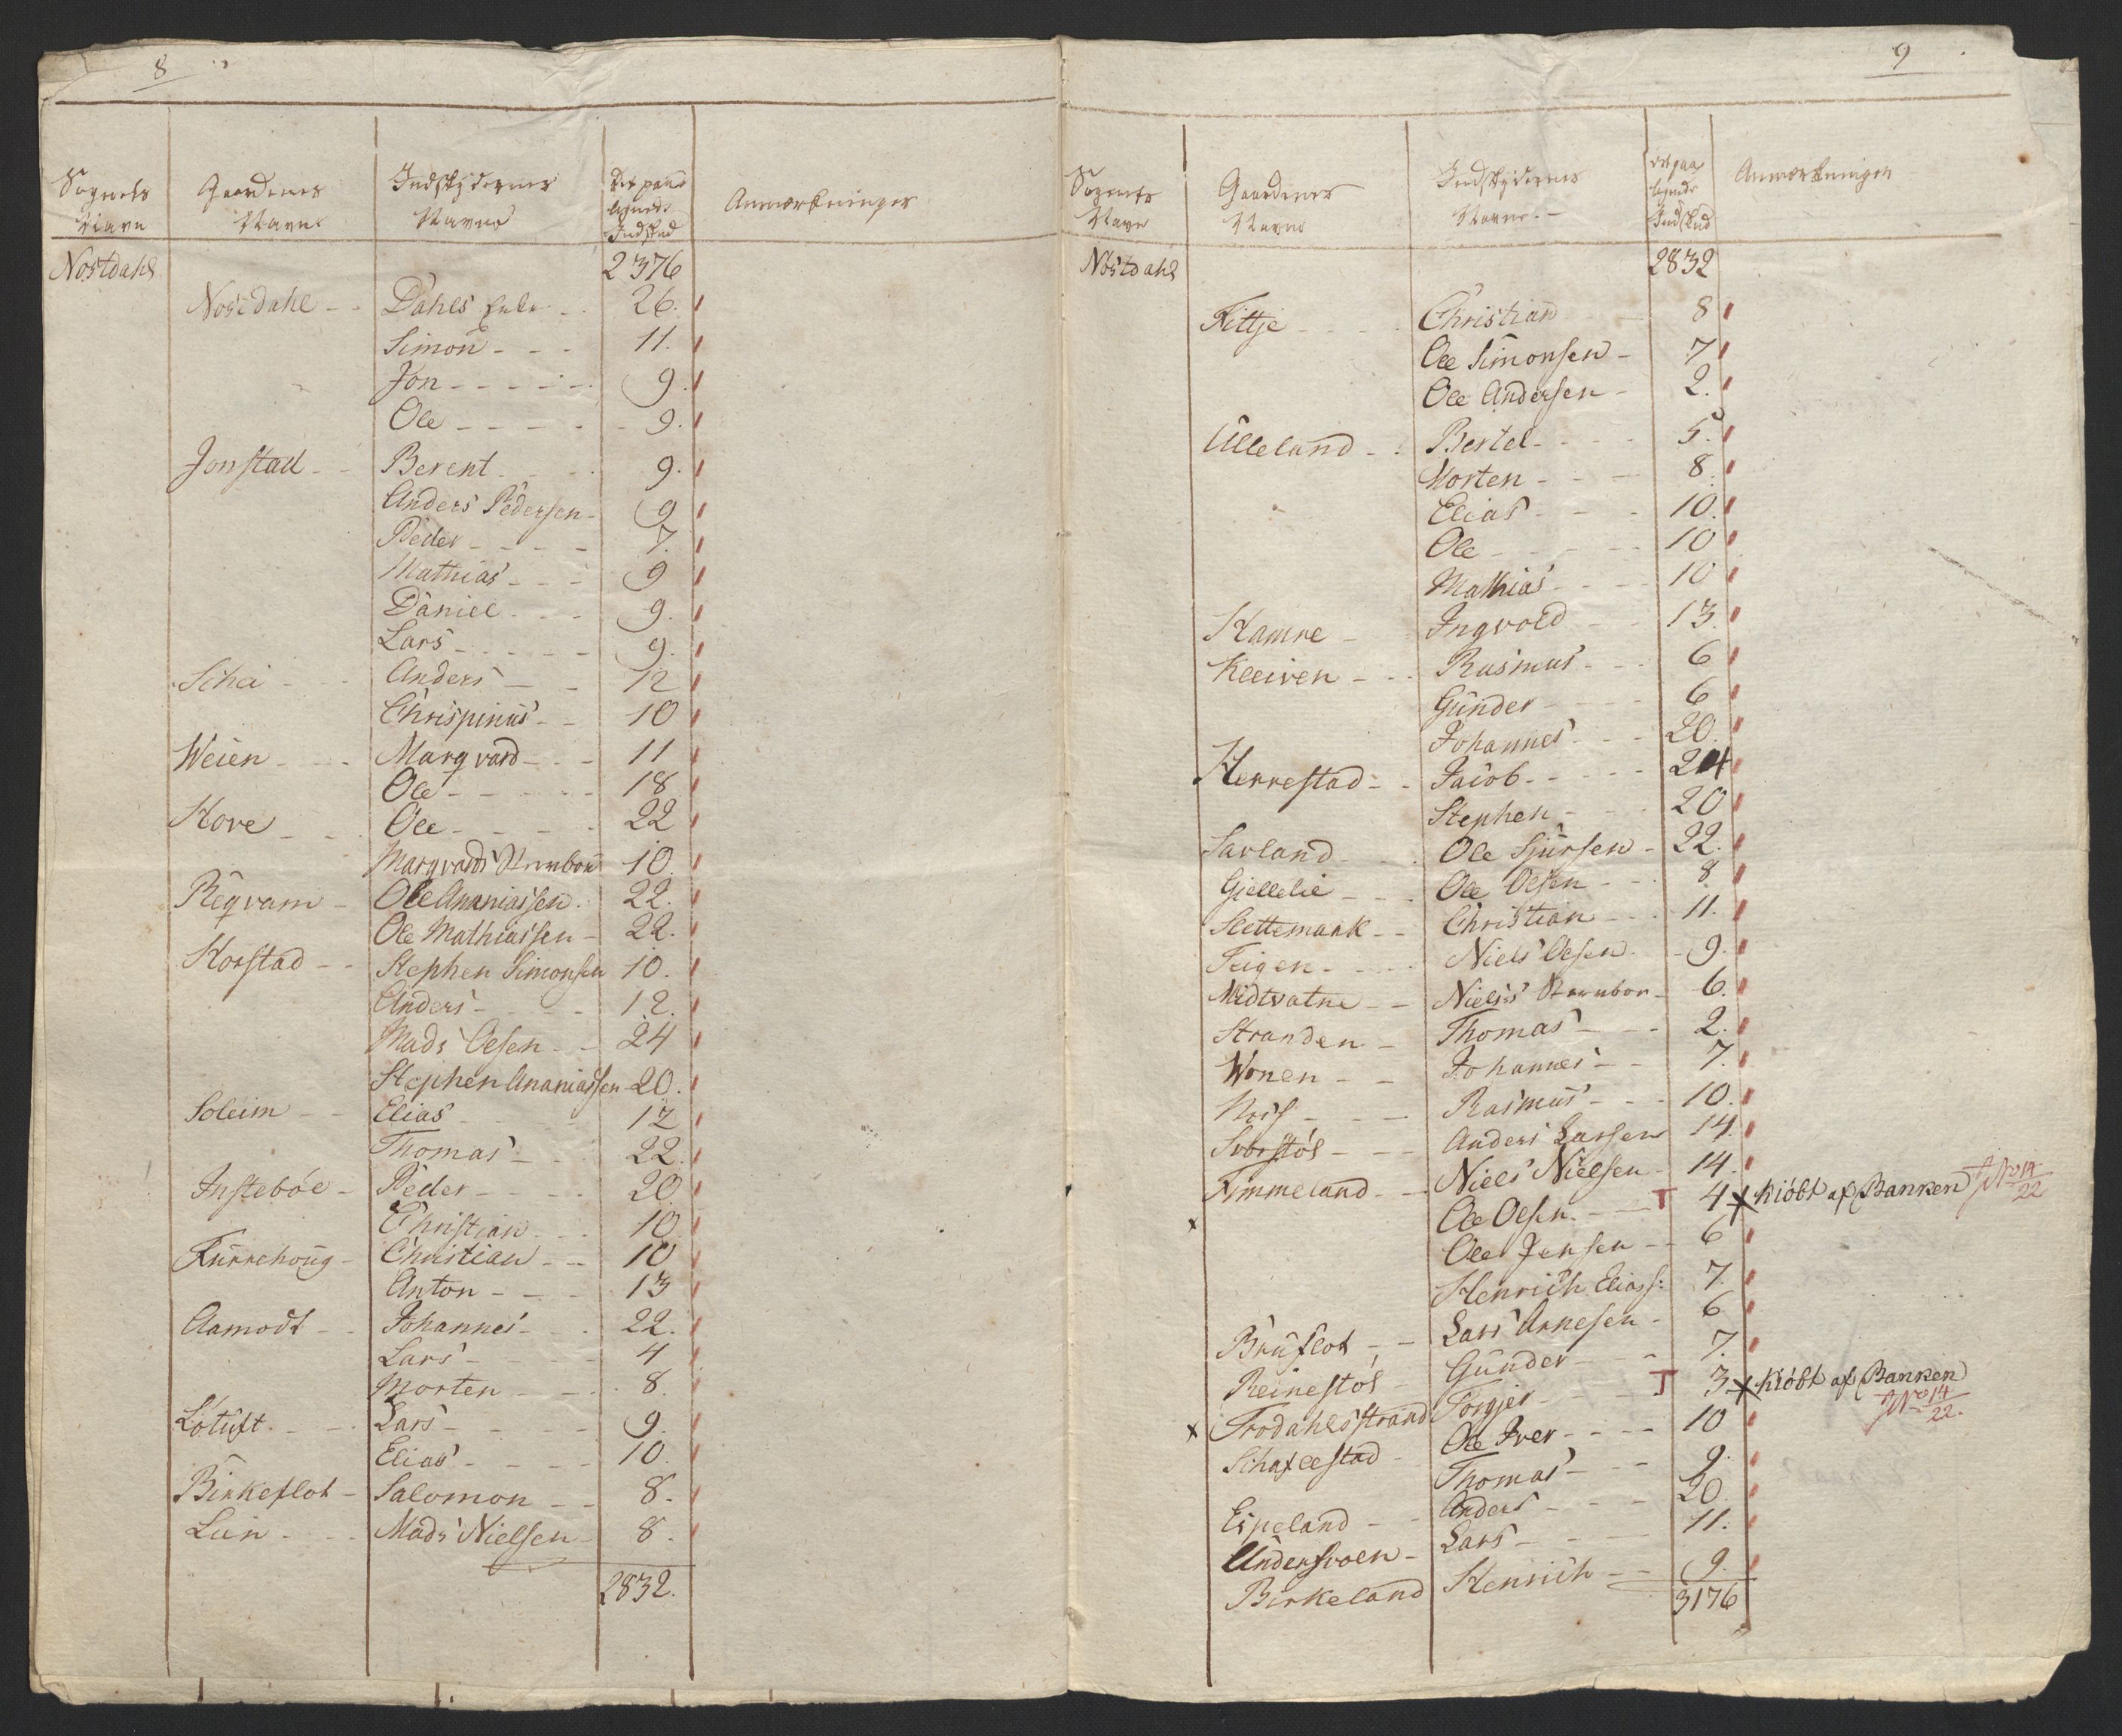 8
Sognets Navn | Gaardenes Navne | Indskydernes Navne | Det paalignede Indskud | Anmærkninger
Nostdahl | 2376
Nostdahl - - Dahls Enke - - 26.
Simon - - - 11.
Jon - - - - - 9.
Ole - - - - - 9.
Jonstad - - Berent - - - 9.
Anders Pedersen - 9
Peder - - - - 7.
Mathias - - - 9
Daniel - - - 9.
Lars - - - - - 9.
Schei - - - Anders - - 12
Chrispinus - - 10
Weien - - - Marqvard - - - 11
Ole - - - - - 18
Hove - - - Ole - - - - - 22
Marqvards 10.
Reqvam - Ole Ananiassen. 22.
Ole Mathiassen - 22.
Horstad - - Stephen Simonsen 10.
Anders - - - - 12.
Mads Olesen - - 24
Stephen Ananiassen - 20.
Soleim - - Elias - - - - 12
Thomas - - - 22.
Instebøe - Peder - - - - 20.
Christian - - - 10
Kurrehoug - Christian - - 10
Anton - - - 13
Aamodt - - Johannes - - - 22.
Lars - - - - - 4
Morten - - - 8.
Løtuft - - - Lars - - - - - 9.
Elias - - - - 10.
Birkeflot - Salomon - - 8.
Lun - - - Mads Nielsen - 8.
2832.
9
Sognets Navn | Gaardenes Navne | Indskydernes Navne. - | Det paalignede Indskud | Anmærkninger
Nøstdahl | 2832
Fittje - - - - Christian 8
Ole Simonsen - 7
Ole Andersen - 2.
Ulleland - - Bertel - - - - 5.
Morten - - - 8.
Elias - - - 10.
Ole - - - - - 10
Mathias - - - - 10
Hamre - Ingvold - - 13.
Kleiven - - - Rasmus - - - 6
Gunder - - - 6
Johannes - - - 20.
Herrestad - - Jacob - - - - - 24
Stephen - - - 20
Sarland - - - Ole Sjursen - 22.
Gjellelie - - - Ole Olsen - - 8
Slettemark - - Christian - - - 11.
Teigen - - - - Niels Olesen - - 9.
Midtvatne - - Niels's 6.
Stranden - Thomas - - - 2.
Wonen - - Johannes - - 7.
Ness - - - Rasmus - - - 10.
Svorstøl - - - Anders Larsen 14.
Timmeland - - Niels Nielsen - 14.
x Ole Olsen - - T 4 x Kiøbt af Banken No 14/22
Ole Jensen - - 6
Henrich Eliass: 7.
Bruflot - - Lars Arnesen - 6
Reinestøl - Gunder - - - 7.
x Trodahlsstrand Torgjer - - T 3 x Kiøbt af Banken No 14/22.
Schaflestad - Ole Iver - - - - 10
Thomas - - - 9.
Espeland - - Anders - - - 20.
Undersvoen - Lars - - - - 11.
Birkeland Henrich - - 9.
3176